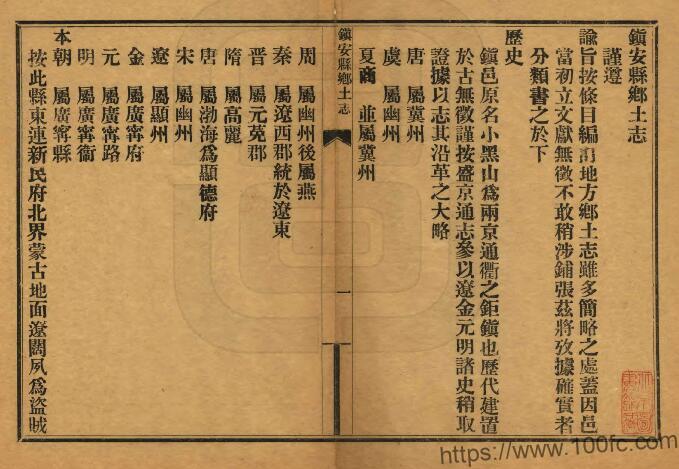 鎭安縣鄉土志
謹遵
諭旨按條目編爲地方鄉土志雖多簡略之處蓋因邑
當初立文獻無徵不敢稍涉鋪張茲將攷據確實者
分類書之於下
歷史
鎭邑原名小黑山爲兩京通衢之鉅鎭也歷代建置
於古無徵謹按盛京通志參以遼金元明諸史稍取
證據以志其沿革之大略
唐 屬冀州
虞 屬幽州
夏商 並屬冀州
鎭安縣鄉土志
一
周 屬幽州後屬燕
秦 屬遼西郡統於遼東
晉 屬元菟郡
隋 屬高麗
唐 屬渤海爲顯德府
宋 屬幽州
遼 屬顯州
金 屬廣寧府
元 屬廣寧路
明 屬廣寧衞
本朝 屬廣寧縣
按此縣東連新民府北界蒙古地面遼闊夙爲盜賊
https://www.100fc.com